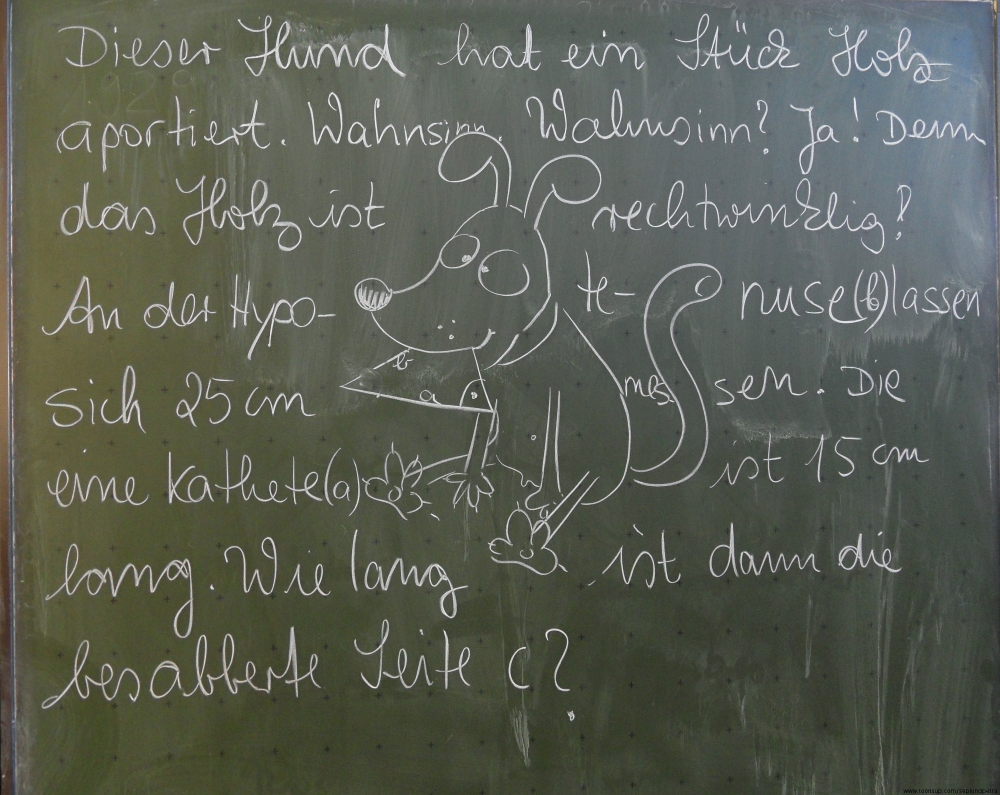 Dieser Hund hat ein Stück Holz
aportiert. Wahnsinn. Wahnsinn? Ja! Denn
das Holz ist rechtwinklig!
An der Hypo- te- nuse(b)lassen
sich 25 cm mes sen. Die
b
a
eine Kathete(a) ist 15 cm
lang. Wie lang ist dann die
besabberte Seite c?